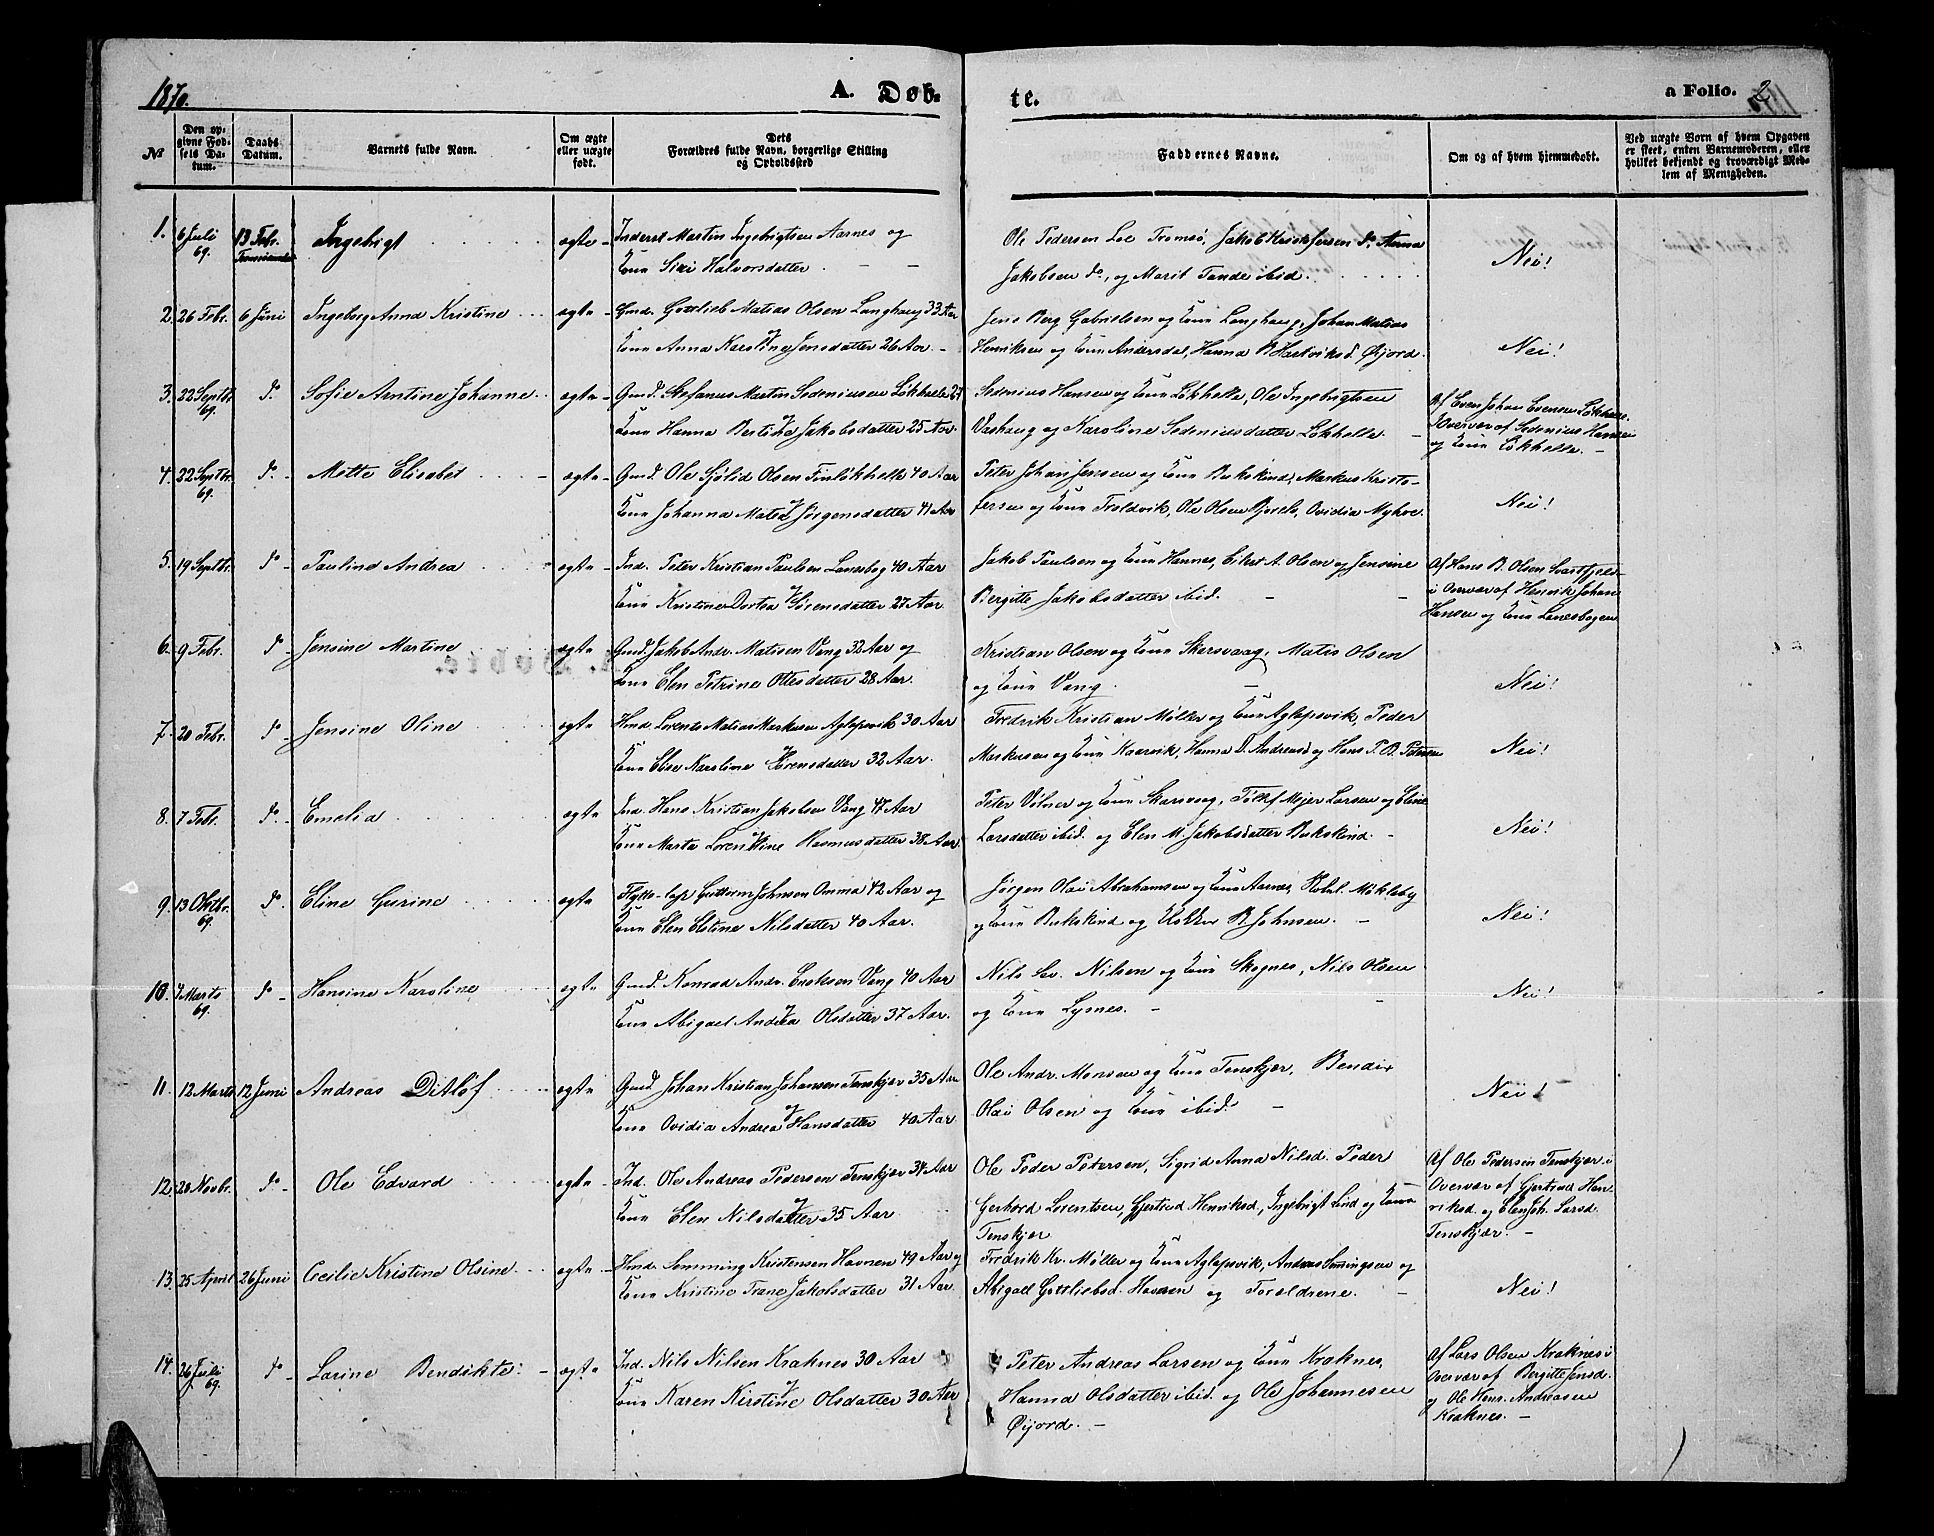 1870.
A. Døb-
te.
a Folio. 2
№
Den op-
givne Fød-
sels Da-
tum.
Daabs
Datum.
Barnets fulde Navn.
Om ægte
eller uægte
født.
Dets
Forældres fulde Navn, borgerlige Stilling
og Opholdssted
Faddernes Navne.
Om og af hvem hjemmedøbt.
Ved uægte Børn af hvem Opgaven
er skeet, enten Barnemoderen, eller
hvilket bekjendt og troværdigt Med-
lem af Menigheden.
1. 6 Juli 69. 13 Febr. Ingebrigt ægte Inderst Martin Ingebrigtsen Aarnes og
Kone Siri Halvorsdatter.
Ole Pedersen Tromsø, Jakob Kristofersen do Anna
Jakobsen do, og Marit Tande ibid.
Nei!
2. 26 Febr. 6 Juni Ingeborg Anna Kristine ægte Gmd. Gottlieb Matias Olsen Langhaug 33 Aar
Kone Anna Karoline Jensdatter 26 Aar.
Jens Berg Gabrielsen og Kone Langhaug, Johan Matias
Henriksen og Kone Andersdal, Hanna B. Hartviksd. Øijord.
Nei!
3. 22 Septbr. 69. do Sofie Arntine Johanne ægte Gmd. Stefanus Martin Sedeniusen Løkhelle 27
Kone Hanna Bertine Jakobsdatter 25 Aar.
Sedenius Hansen og Kone Løkhelle, Ole Ingebrigtsen
Vashaug og Karoline Sedeniusdatter Løkhelle.
Af Even Johan Evensen Løkhelle
i Overvær af Sedenius Hansen
og Kone Løkhelle.
4. 22 Septbr. 69. do Mette Elisabet ægte Gmd. Ole Sjølid Olsen Finløkhelle 40 Aar
Kone Johanna Matea Jørgensdatter 41 Aar
Peter Johan Jensen og Kone Bukskind, Markus Kristo-
fersen og Kone Troldvik, Ole Olsen, Ovidia Myhre.
Nei!
5. 19 Septbr. do Pauline Andrea ægte Ind. Peter Kristian Paulsen Lanesbog 40 Aar
Kone Kristine Dortea Sørensdatter 27 Aar
Jakob Paulsen og Kone Hannes, Eilert A. Olsen og Jensine
Bergitte Jakobsdatter ibid.
Af Hans B. Olsen Svartfjeld
i Overvær af Henrik Johan
Hansen og Kone Lanesbogen
6. 9 Febr. do Jensine Martine ægte Gmd. Jakob Andr. Matisen Vang 32 Aar og
Kone Elen Petrine Ottesdatter 28 Aar.
Kristian Olsen og Kone Skarsvaag, Matis Olsen
og Kone Vang.
Nei!
7. 20 Febr. do Jensine Oline ægte Hmd. Lorents Matias Markusen Aglapsvik 30 Aar
Kone Else Karoline Sørensdatter 32 Aar.
Fredrik Kristian Møller og Kone Aglapsvik, Peder
Markusen og Kone Kaarvik, Hanna D. Andreasd. og Hans P. B. Petersen
Nei!
8. 7 Febr. do Emelia ægte Ind. Hans Kristian Jakobsen Vang 47 Aar
Kone Marta Lorentine Rasmusdatter 38 Aar.
Peter Vølner og Kone Skarsvaag, Tollef Mejer Larsen og Eline
Larsdatter ibid. og Elen M. Jakobsdatter Bukskind.
Nei!
9. 13 Oktbr. 69. do Eline Gurine ægte Flytlap Guttorm Johnsen Omma 42 Aar og
Kone Elen Elstine Nilsdatter 40 Aar.
Jørgen Olai Abrahamsen og Kone Aarnes, Møkleby
og Kone Bukskind og B. Johnsen.
Nei!
10. 7 Marts 69. do Hansine Karoline ægte Gmd. Konrad Andr. Eriksen Vang 40 Aar
Kone Abigael Andrea Olsdatter 37 Aar.
Nils Nilsen og Kone Skognes, Nils Olsen
og Kone Lysnes.
Nei!
11. 12 Marts 12 Juni Andreas Ditløf ægte Gmd. Johan Kristian Johansen Tenskjær 35 Aar
Kone Ovidia Andrea Hansdatter 40 Aar
Ole Andr. Monsen og Kone Tenskjær, Bendix
Olai Olsen og Kone ibid.
Nei!
12. 20 Novbr. do Ole Edvard ægte Ind. Ole Andreas Pedersen Tenskjær 34 Aar
Kone Elen Nilsdatter 35 Aar
Ole Peder Petersen, Sigrid Anna Nilsd. Peder
Gerhard Lorentsen, Gjertrud Henriksd., Ingebrigt Lind og Kone
Tenskjær
Af Ole Pedersen Tenskjær i
Overvær af Gjertrud Hen-
riksd. og Elen Joh. Larsd.
Tenskjær.
13. 25 April 26 Juni Cecilie Kristine Olsine ægte Hmd. Semming Kristensen Havnen 49 Aar og
Kone Kristine Trane Jakobsdatter 31 Aar.
Fredrik Kr. Møller og Kone Aglapsvik, Andreas Semingsen og
Abigael Gottliebsd. Havnen og Forældrene.
Nei!
14. 26 Juli 69. do Larine Bendikte ægte Ind. Nils Nilsen Kraknes 30 Aar
Kone Karen Kirstine Olsdatter 30 Aar
Peter Andreas Larsen og Kone Kraknes,
Hanna Olsdatter ibid. og Ole Johannesen
Øijord.
Af Lars Olsen Kraknes i
Overvær af Bergitte Jensd.
og Ole Henr. Andreasen
Kraknes.